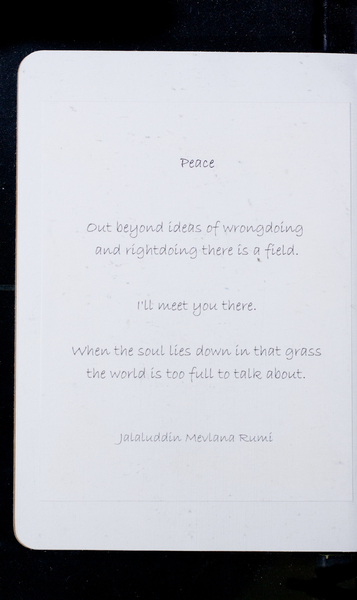 Peace
Out beyond ideas of wrongdoing
and rightdoing there is a field.
I'll meet you there.
When the soul lies down in that grass
the world is too full to talk about.
Jalaluddin Mevlana Rumi